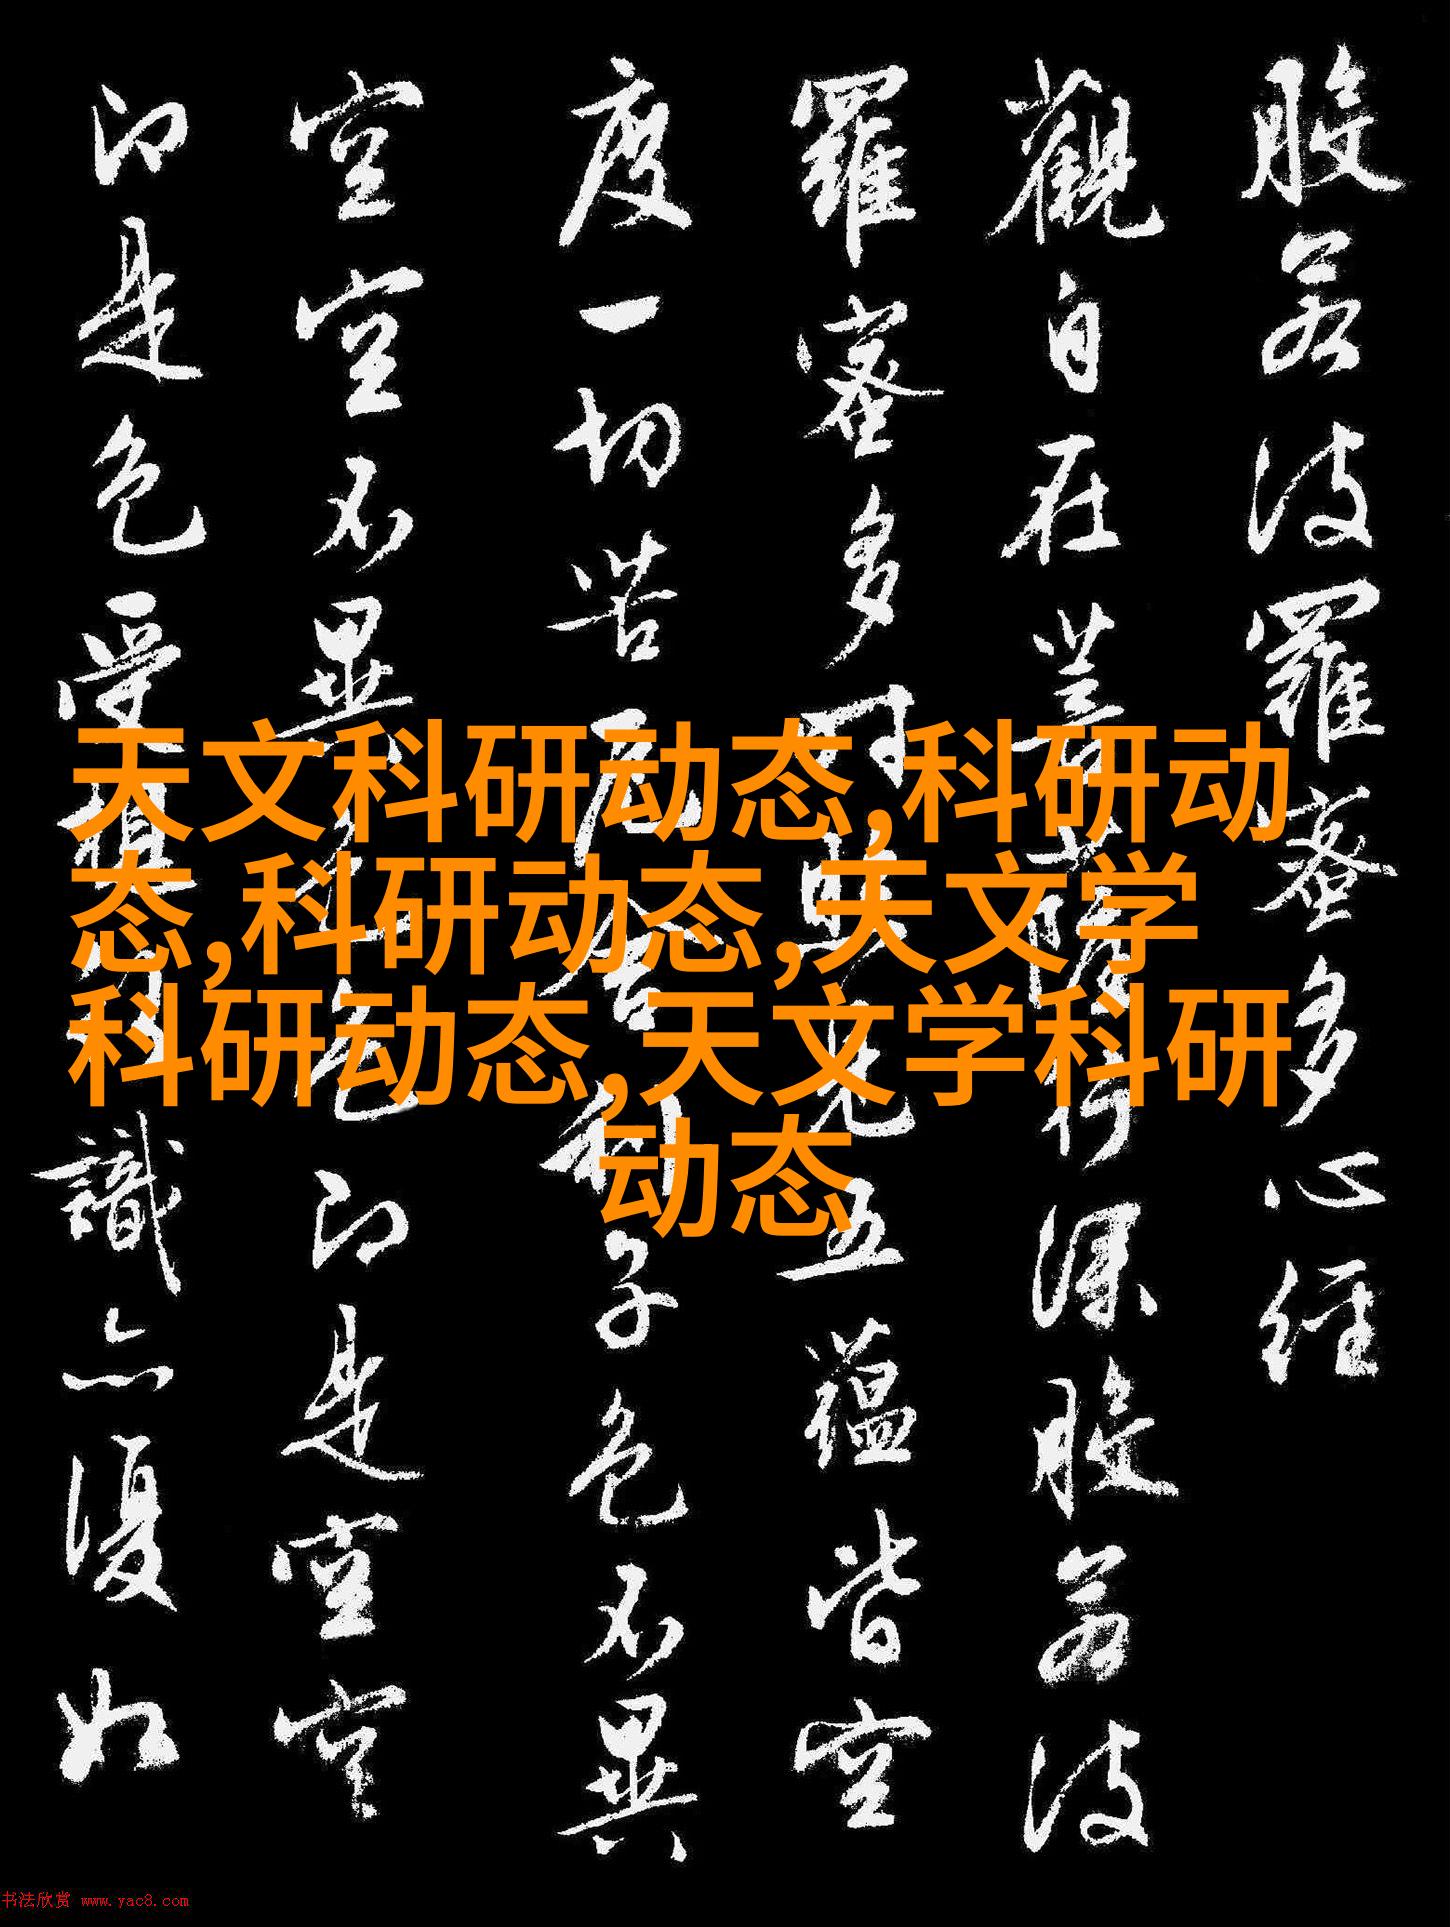 般若波羅蜜多心経
觀自在菩薩行深般若波
羅蜜多時照見五蘊皆空
度一切苦厄舍利子色不異
空空不異色色即是空空
即是色受想行識亦復如
天文科研动态,科研动
态,科研动态,天文学
科研动态,天文学科研
动态
书法欣赏 www.yac8.com